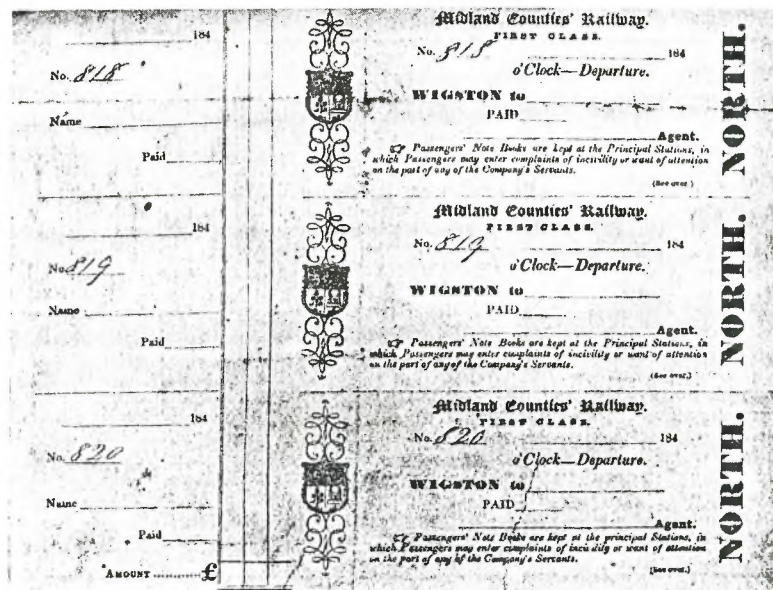 184
No. 818
Name
Paid
Midland Counties' Railway.
FIRST CLASS.
No. 818 184
o'Clock—Departure.
WIGSTON to
PAID
Agent.
☞ Passengers' Note Books are kept at the Principal Stations, in
which Passengers may enter complaints of incivility or want of attention
on the part of any of the Company's Servants.
(See over.)
NORTH.
184
No. 819
Name
Paid
Midland Counties' Railway.
FIRST CLASS.
No. 819 184
o'Clock—Departure.
WIGSTON to
PAID
Agent.
☞ Passengers' Note Books are kept at the Principal Stations, in
which Passengers may enter complaints of incivility or want of attention
on the part of any of the Company's Servants.
(See over.)
NORTH.
184
No. 820
Name
Paid
AMOUNT ......... £
Midland Counties' Railway.
FIRST CLASS.
No. 820 184
o'Clock—Departure.
WIGSTON to
PAID
Agent.
☞ Passengers' Note Books are kept at the principal Stations, in
which Passengers may enter complaints of incivility or want of attention
on the part of any of the Company's Servants.
(See over.)
NORTH.